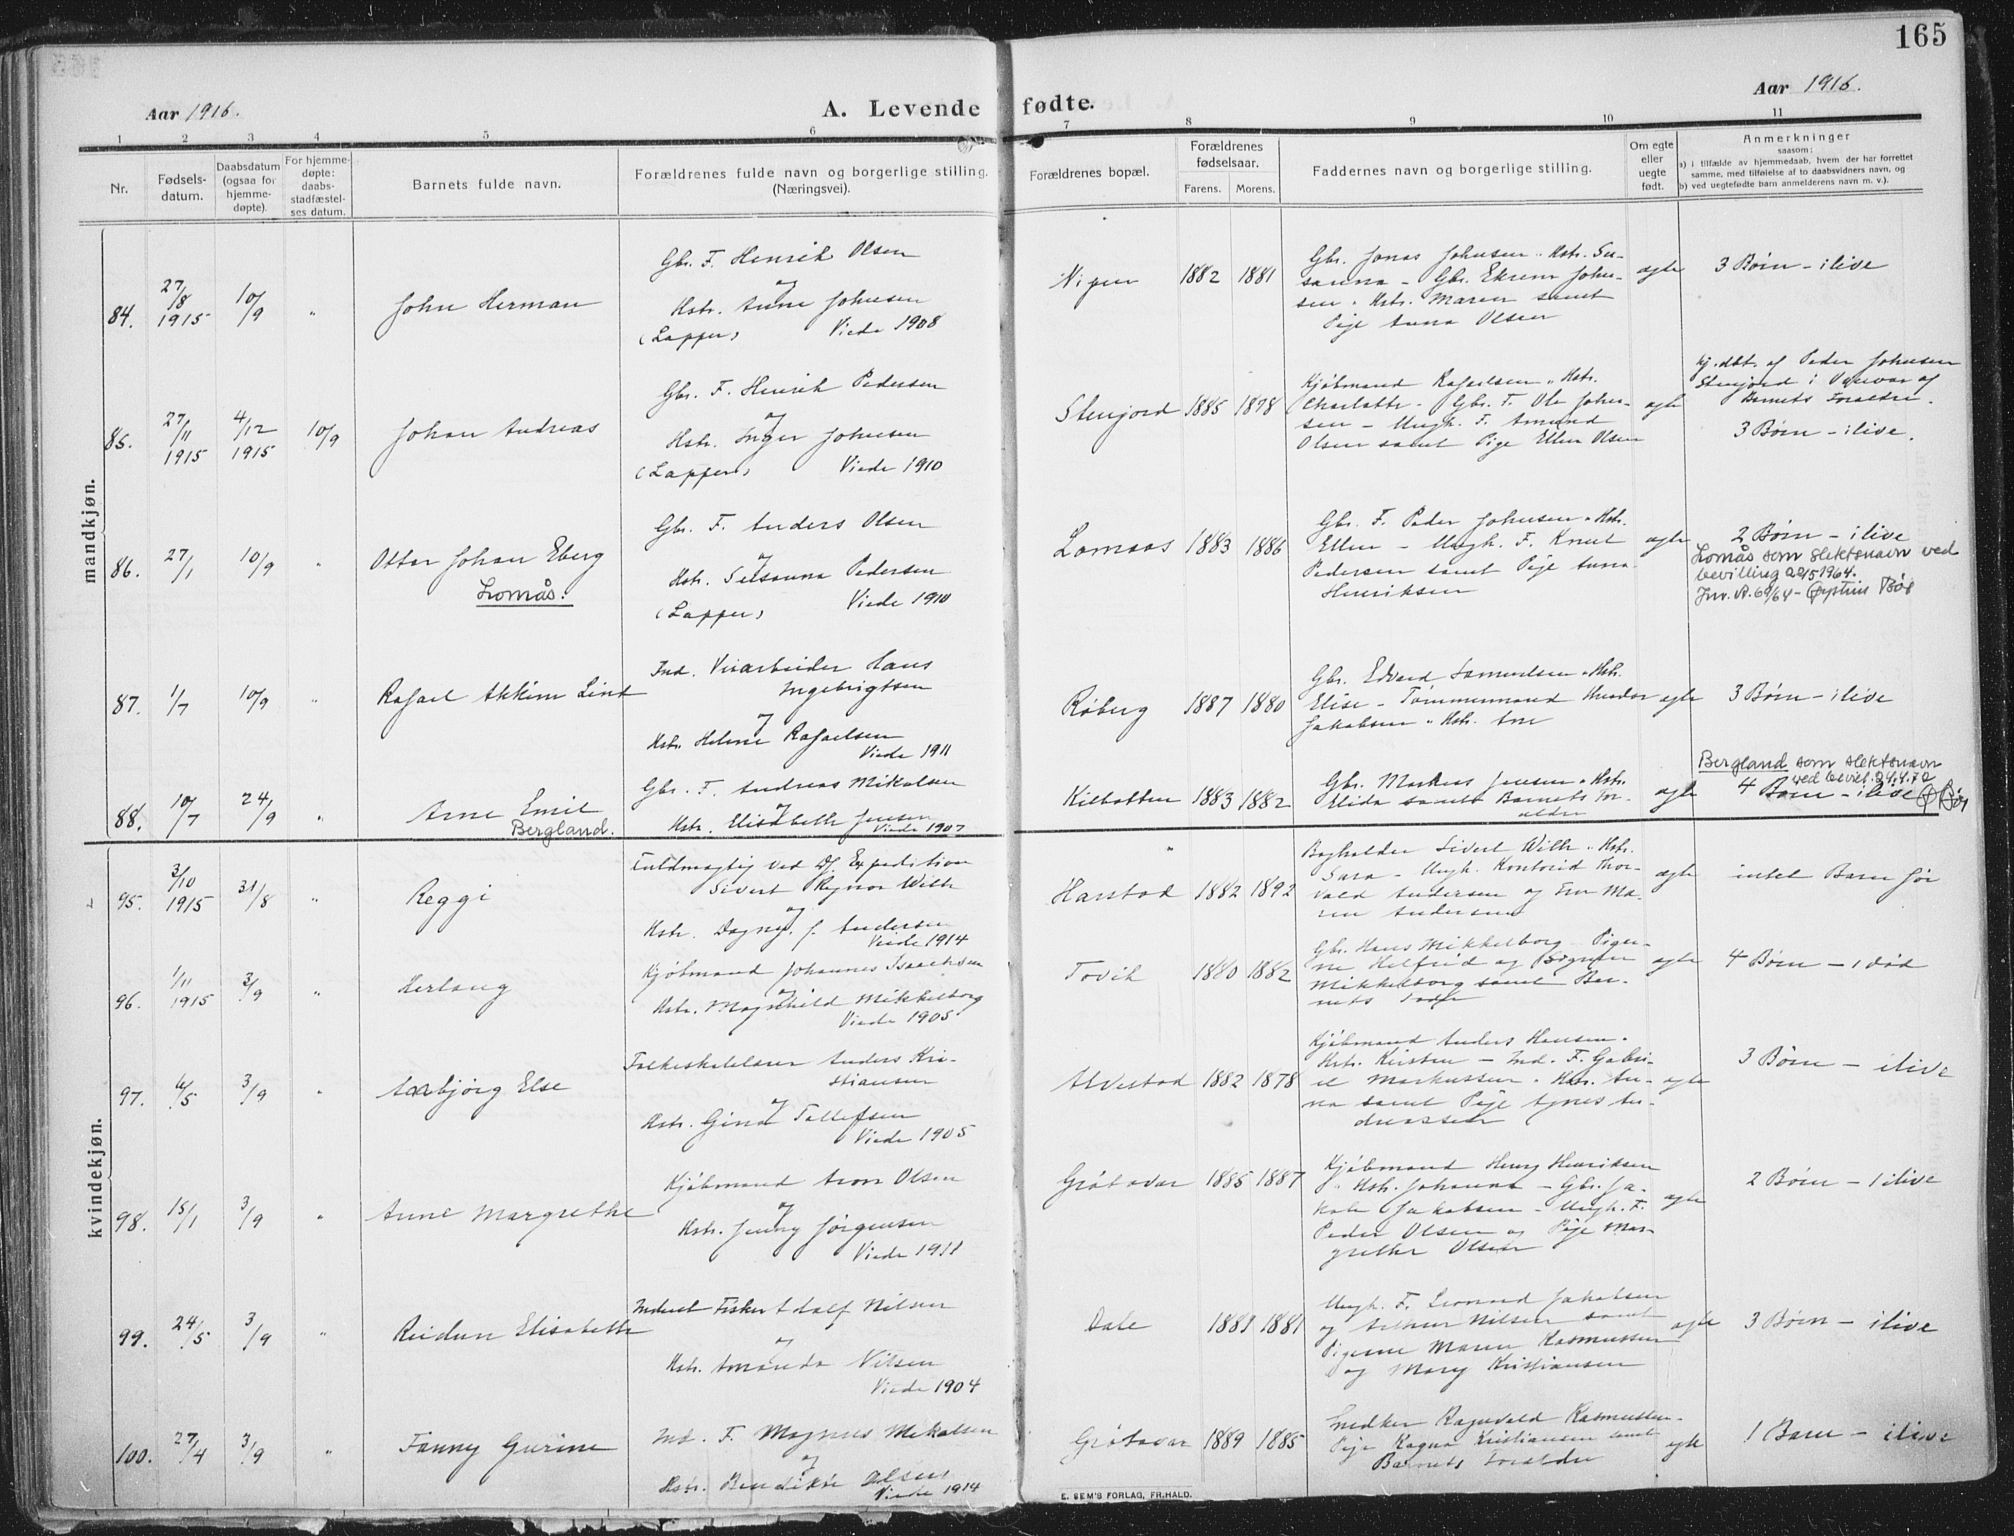 165
Aar 1916.
A. Levende fødte.
Aar 1916.
1 2 3 4 5 6 7 8 9 10 11
Nr.
Fødsels-
datum.
Daabsdatum
(ogsaa for
hjemme-
døpte).
For hjemme-
døpte:
daabs-
stadfæstel-
ses datum.
Barnets fulde navn.
Forældrenes fulde navn og borgerlige stilling.
(Næringsvei).
Forældrenes bopæl.
Forældrenes
fødselsaar.
Farens. Morens.
Faddernes navn og borgerlige stilling.
Om egte
eller
uegte
født.
Anmerkninger
saasom:
a) i tilfælde av hjemmedaab, hvem der har forrettet
samme, med tilføielse af to daabsvidners navn, og
b) ved uegtefødte barn anmelderens navn m. v.).
mandkjøn.
84.
27/8
1915
10/9
"
John Herman
Gbr. F. Henrik Olsen
og
Hstr. Anne Johnsen
(Lapper) Viede 1908
Nipen
1882 1881
Gbr. Jonas Johnsen. Hstr. Su-
sanna - Gbr. Ekrem John-
sen. Hstr. Maren samt
Pige Anna Olsen
egte
3 Børn - ilive
85.
27/11
1915
4/12
1915
10/9
Johan Andreas
Gbr. F. Henrik Pedersen
og
Hstr. Inger Johnsen
(Lapper) Viede 1910
Stenjord
1885 1878
Kjøbmand Rafaelsen. Hstr.
Charlotte - Gbr. F. Ole Johan-
sen - Ungk. F. Amund
Olsen samt Pige Ellen Olsen
egte
hj.dbt. af Peder Johnsen
Stenjord i Værvar af
Barnets Forældre.
3 Børn - ilive.
86.
27/1
10/9
"
Ottar Johan Eberg
Lomås.
Gbr. F. Anders Olsen
og
Hstr. Susanna Pedersen
(Lapper) Viede 1910
Lomaas
1883 1886
Gbr. F. Peder Johnsen. Hstr.
Ellen - Ungk. F. Knut
Pedersen samt Pige Anna
Henriksen
egte
2 Børn - ilive
Lomås som slektsnavn ved
bevilling 22/5 1964.
87.
1/7
10/9
"
Rafael Akkim Lind
Ind. Veiarbeider Hans
Ingebrigtsen
og
Hstr. Helene Rafaelsen
Viede 1911
Røberg
1887 1880
Gbr. Edvard Samuelsen. Hstr.
Elise - Tømmermand
Jakobsen. Hstr. Ane
egte
3 Børn - ilive
88.
10/7
24/9
"
Arne Emil
Bergland.
Gbr. F. Andreas Mikalsen
og
Hstr. Elisabeth Jensen
Viede 1907
Kilbotten
1883 1882
Gbr. Markus Jensen. Hstr.
Elida samt Barnets For-
ældre
egte
Bergland som slektsnavn
ved bevil. 24.4.72
4 Børn - ilive Ø Bøe
kvindekjøn.
95.
3/10
1915
31/8
"
Reggi
Fuldmægtig ved Df. Expedition
Sivert Regnor Wilh
og
Hstr. Dagny f. Andersen
Viede 1914
"
Harstad
1882 1892
Bogholder Sivert Wilh. Hstr.
Sara - Ungk. Kontorist Thor-
vald Andersen og Fru Ma-
rie Andersen
egte
intet Barn før
96.
1/11
1915
3/9
"
Herlaug
Kjøbmand Johannes Isachsen
og
Hstr. Magnhild Mikkelborg
Viede 1905
Tovik
1880 1882
Gbr. Hans Mikkelborg - Piger-
ne Helfrid og Dagmar
Mikkelborg samt Bar-
nets Fader
egte
4 Børn - 1 død
97.
4/5
3/9
"
Annbjørg Else
Folkeskolelærer Anders Kri-
stiansen
og
Hstr. Gina Tollefsen
Viede 1905
Alvestad
1882 1878
Kjøbmand Anders Hansen.
Hstr. Kirsten - Ind. F. Gabri-
el Markussen. Hstr. An-
na samt Pige Agnes An-
dreassen
egte
3 Børn - ilive
98.
15/1
3/9
"
Anne Margrethe
Kjøbmand Aron Olsen
og
Hstr. Jenny Jørgensen
Viede 1911
Grøtavær
1885 1887
Kjøbmand Henry Henriksen
. Hstr. Johanna - Gbr. Ja-
kob Jakobsen - Ungk. F.
Peder Olsen og Pige Mar-
grethe Olsen
egte
2 Børn - 1 ilive
99.
24/5
3/9
"
Reidun Elisabeth
Inderst Fisker Adolf Nilsen
og
Hstr. Amanda Nilsen
Viede 1904
Dale
1881 1881
Ungk. F. Leonard Jakobsen
og Arthur Nilsen samt
Pigerne Maren Rasmussen
og Mary Kristiansen
egte
3 Børn - ilive
100.
27/4
3/9
"
Fanny Gurine
Ind. F. Magnus Mikalsen
og
Hstr. Bendikte Olsen
Viede 1914
Grøtavær
1889 1885
Snedker Ragnvald Rasmussen.
Pige Ragna Kristiansen samt
Barnets Forældre
egte
1 Barn - ilive
E. SEM'S FORLAG, FR.HALD.